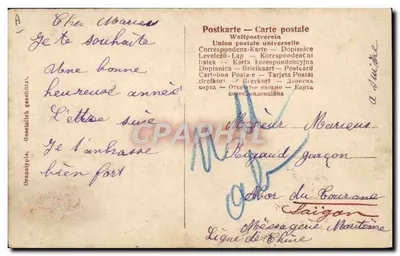 A
Cher Marius
Je te souhaite
Une bonne
heureuse année
Lettre suie
Je t'enbrasse
bien fort
Granotypie. Gesetzlich geschützt.
Postkarte — Carte postale
Weltpostverein
Union postale universelle
Correspondenz-Karte — Dopisnice
Levelező-Lap — Korespondentni
listek — Karta korespondencyjna
Dopisnica — Briefkaart — Postcard
Cartolina Postale — Tarjeta Postal
Brevkort
CPAPHIL.com
a suivre
Mosieur Marius
Rigaud garçon
Abor du Tourane
Saïgon
Messagerie Maritime
Ligne de Chine